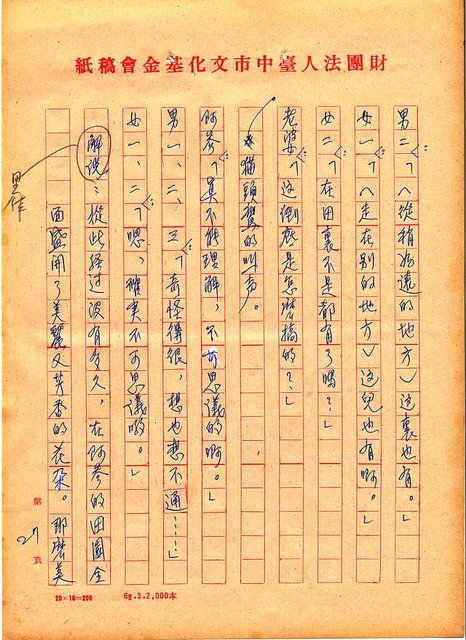 財團法人臺中市文化基金會稿紙
男二：「（從稍為遠的地方）这裏也有。」
女一：「（走在別的地方）这兒也有啊。」
女二：「在田裏不是都有了嗎？」
老婆女：「这倒底是怎麼搞的？」
貓頭鷹的叫声。
阿參：「真不能理解，不可思議的啊。」
男一、二、三：「奇怪得很，想也想不通……」
女一、二：「嗯，確实不可思議喲。」
解说：從此经过没有多久，在阿參的田園全
面盛開了美麗又芳香的花朶。那麼美
黑体
第 27 頁
20×10=200
69.3.2,000本